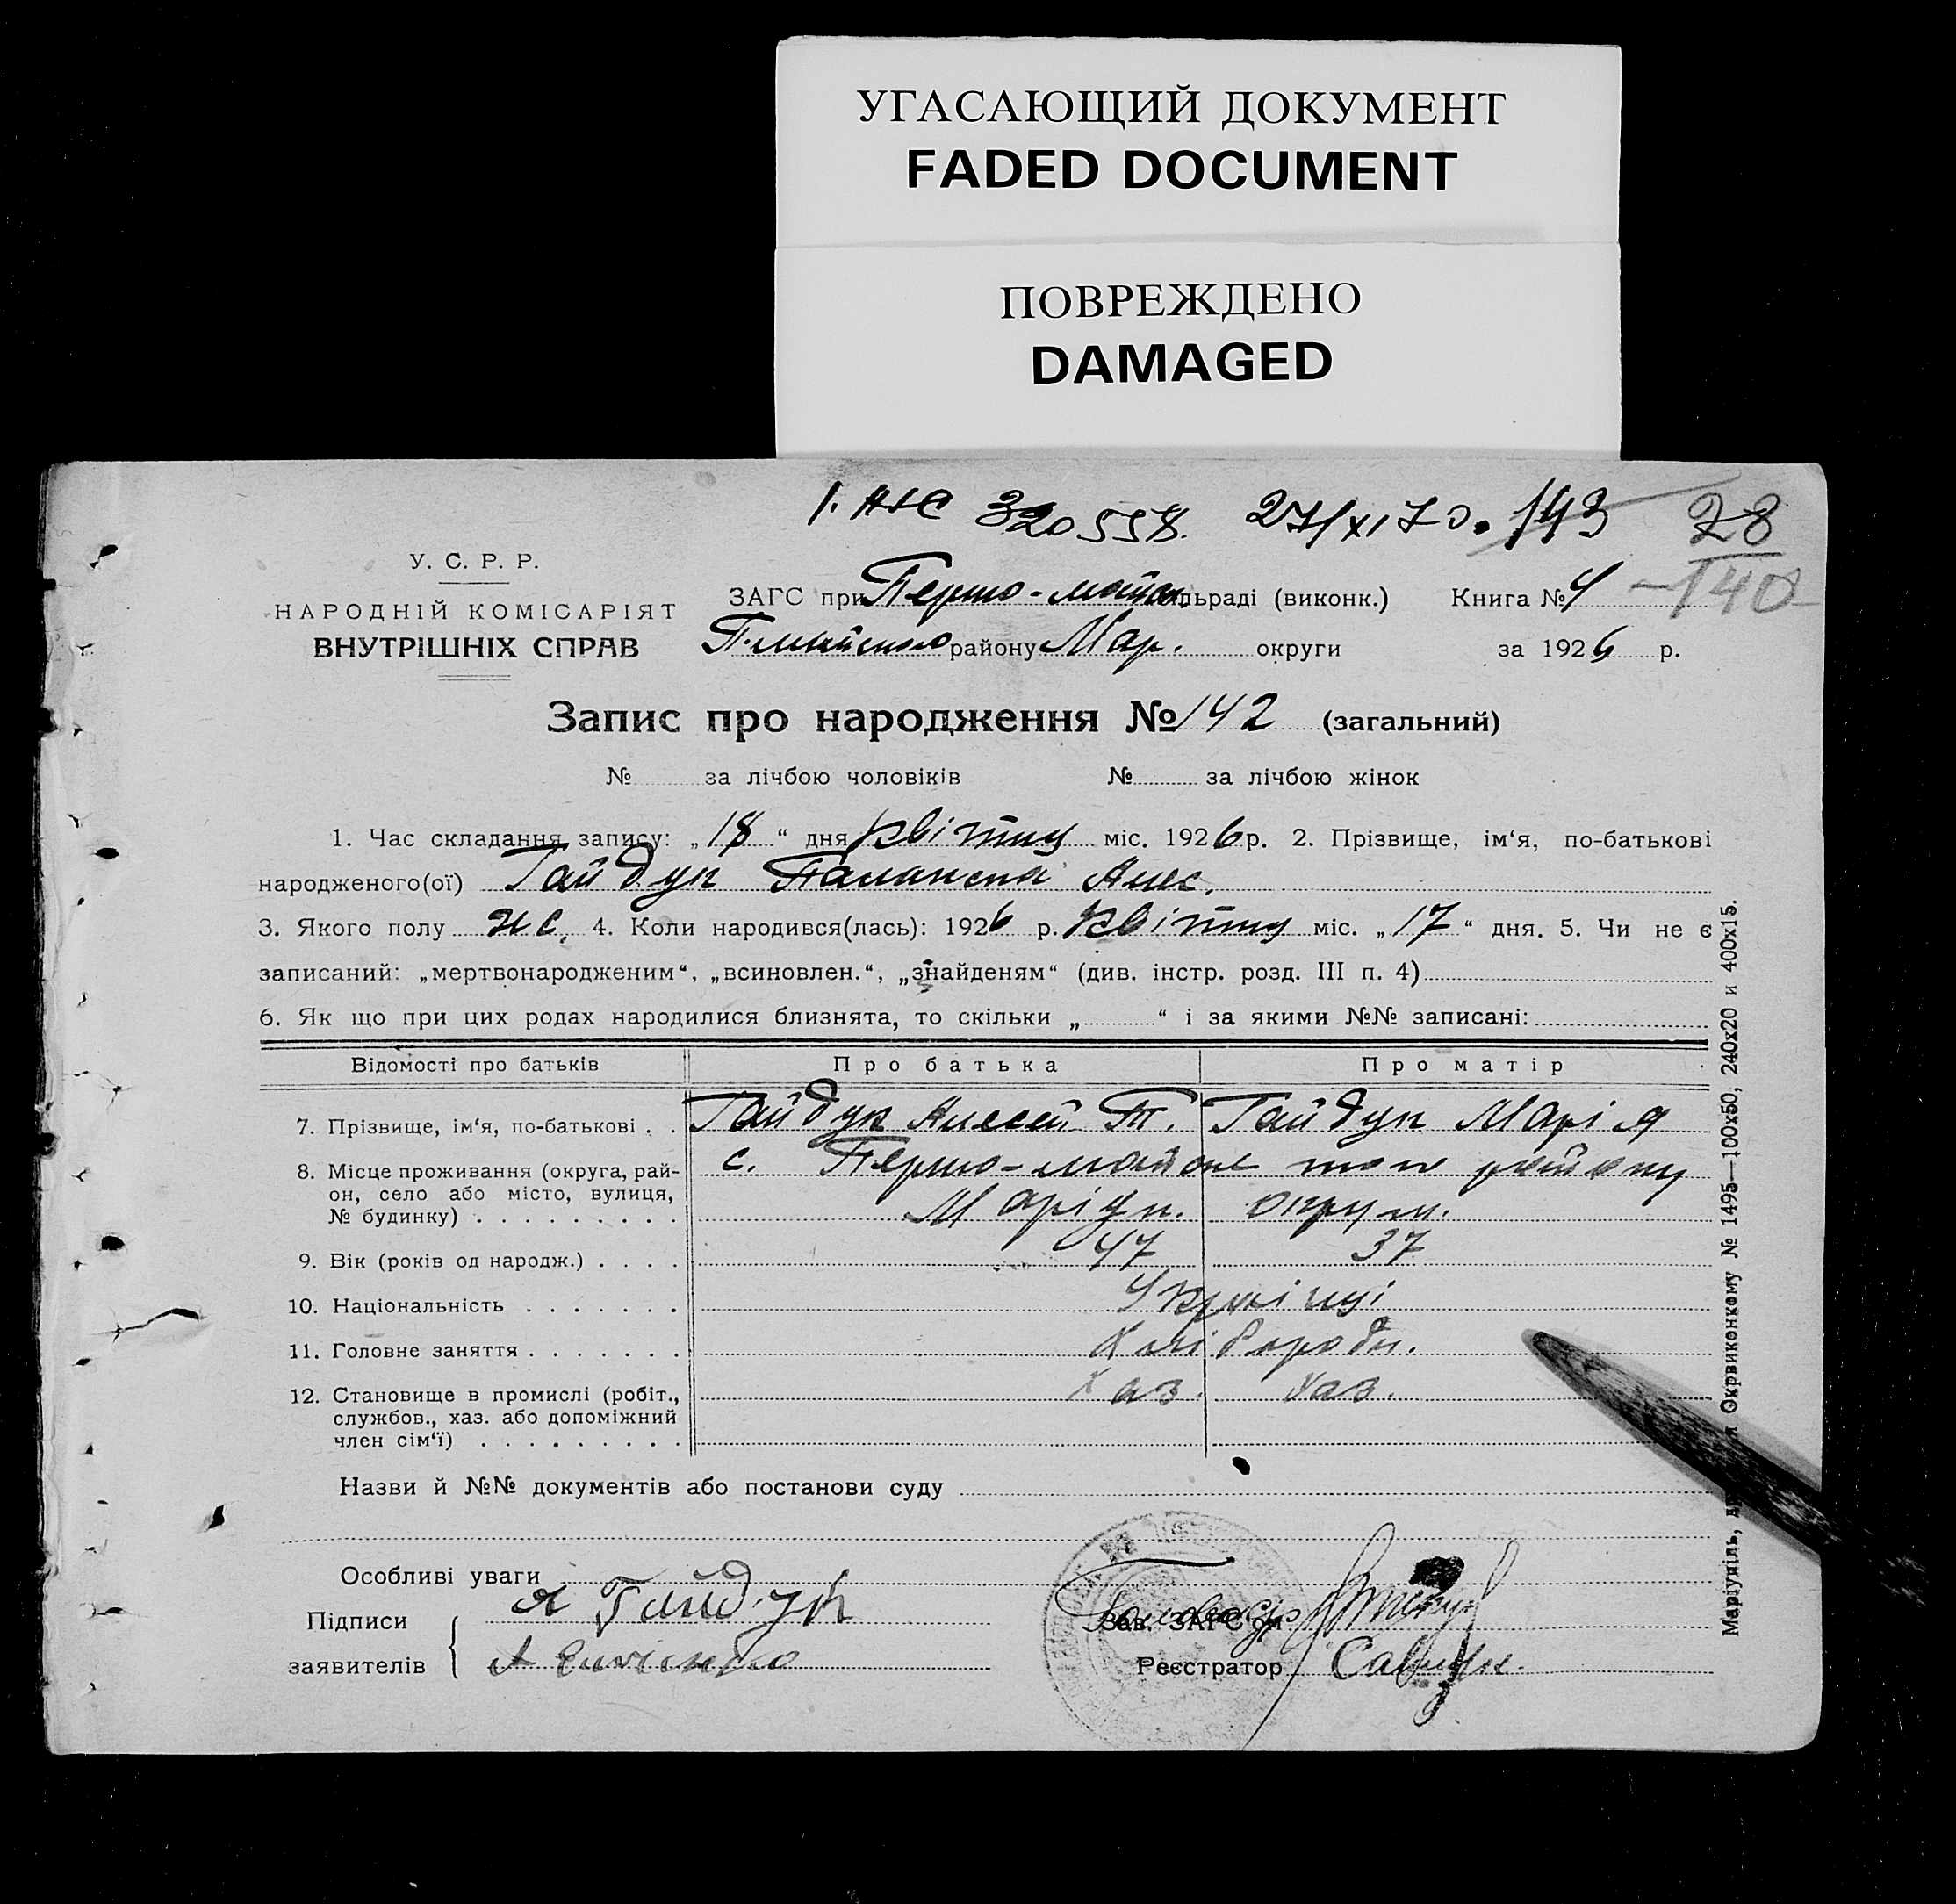 УГАСАЮЩИЙ ДОКУМЕНТ
FADED DOCUMENT
ПОВРЕЖДЕНО
DAMAGED
27/XI 70. 143 28
140
У. С. Р. Р.
НАРОДНІЙ КОМІСАРІЯТ
ВНУТРІШНІХ СПРАВ
ЗАГС при Першо-майск. сільраді (виконк.) Книга № 4
П-майського району Мар. округи за 1926 р.
Запис про народження № 142 (загальний)
№ за лічбою чоловіків № за лічбою жінок
1. Час складання запису: „18“ дня квітня міс. 1926 р. 2. Прізвище, ім‘я, по-батькові
народженого(ої) Гайдук
3. Якого полу ж. 4. Коли народився(лась): 1926 р. квітня міс. „17“ дня. 5. Чи не є
записаний: „мертвонародженим“, „всиновлен.“, „знайденям“ (див. інстр. розд. III п. 4)
6. Як що при цих родах народилися близнята, то скільки „ “ і за якими №№ записані:
Відомості про батьків Про батька Про матір
7. Прізвище, ім‘я, по-батькові . . Гайдук Алексей П. Гайдук Марія
8. Місце проживання (округа, рай-
он, село або місто, вулиця,
№ будинку) . . . . . . . . .
с. Першо-майське того району
Маріуп. округи.
9. Вік (років од народж.) . . . . 47 37
10. Національність . . . . . . . Українці
11. Головне заняття . . . . . . . Хлібороби.
12. Становище в промислі (робіт.,
службов., хаз. або допоміжний
член сім‘ї) . . . . . . . . .
Хаз. Хаз.
Назви й №№ документів або постанови суду
Особливі уваги
Підписи
заявителів
А Гайдук
Зав. ЗАГС‘ом
Реєстратор
Маріупіль, Окрвиконкому № 1495—100х50, 240х20 и 400х15.